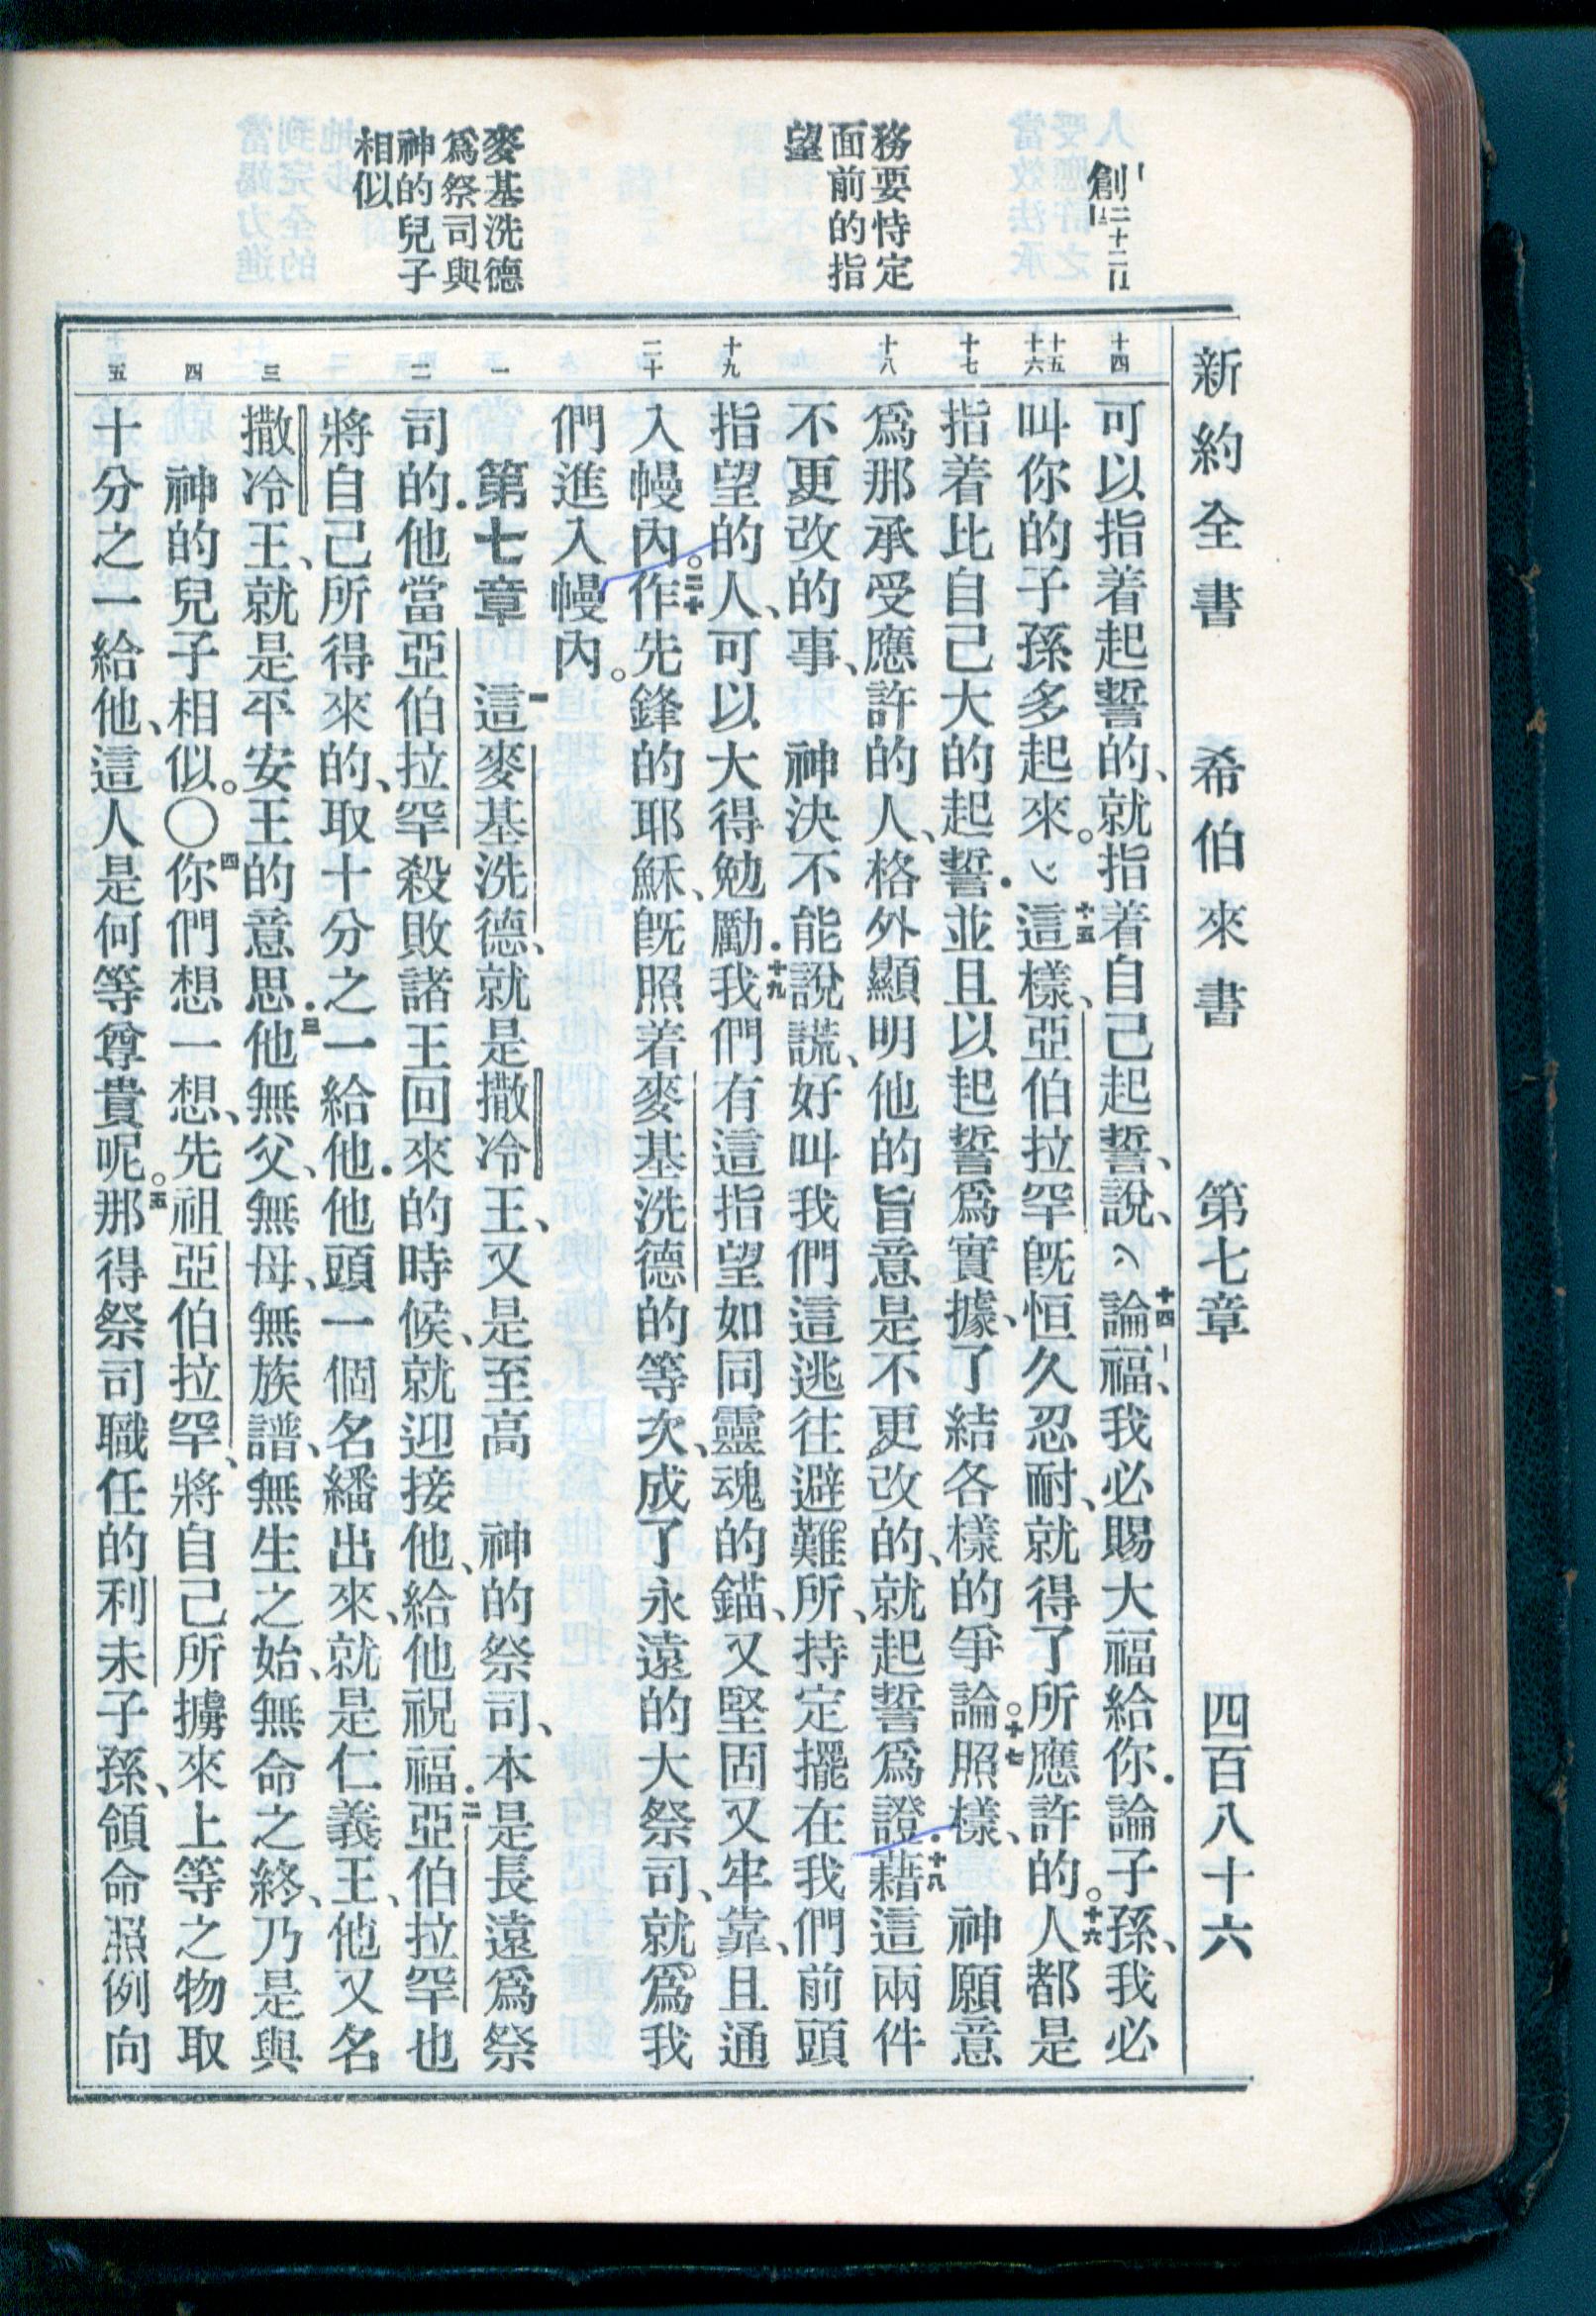 新約全書 希伯來書 第七章 四百八十六
創二十二
務要恃定
面前的指
望
麥基洗德
爲祭司與
神的兒子
相似
十四
十五
十六
十七
十八
十九
二十
一
二
三
四
五
可以指着起誓的、就指着自己起誓、說、十四論福、我必賜大福給你．論子孫、我必
叫你的子孫多起來。十五這樣、亞伯拉罕旣恒久忍耐、就得了所應許的。十六人都是
指着比自己大的起誓．並且以起誓爲實據、了結各樣的爭論。十七照樣、 神願意
爲那承受應許的人、格外顯明他的旨意是不更改的、就起誓爲證．十八藉這兩件
不更改的事、 神決不能說謊、好叫我們這逃往避難所、持定擺在我們前頭
指望的人、可以大得勉勵．十九我們有這指望如同靈魂的錨、又堅固又牢靠、且通
入幔內。二十作先鋒的耶穌、旣照着麥基洗德的等次、成了永遠的大祭司、就爲我
們進入幔內。
第七章 一這麥基洗德、就是撒冷王、又是至高 神的祭司、本是長遠爲祭
司的．他當亞伯拉罕殺敗諸王回來的時候、就迎接他、給他祝福．二亞伯拉罕也
將自己所得來的、取十分之一給他．他頭一個名繙出來、就是仁義王、他又名
撒冷王、就是平安王的意思．三他無父、無母、無族譜、無生之始、無命之終、乃是與
神的兒子相似。〇四你們想一想、先祖亞伯拉罕、將自己所擄來上等之物取
十分之一給他、這人是何等尊貴呢。五那得祭司職任的利未子孫、領命照例向